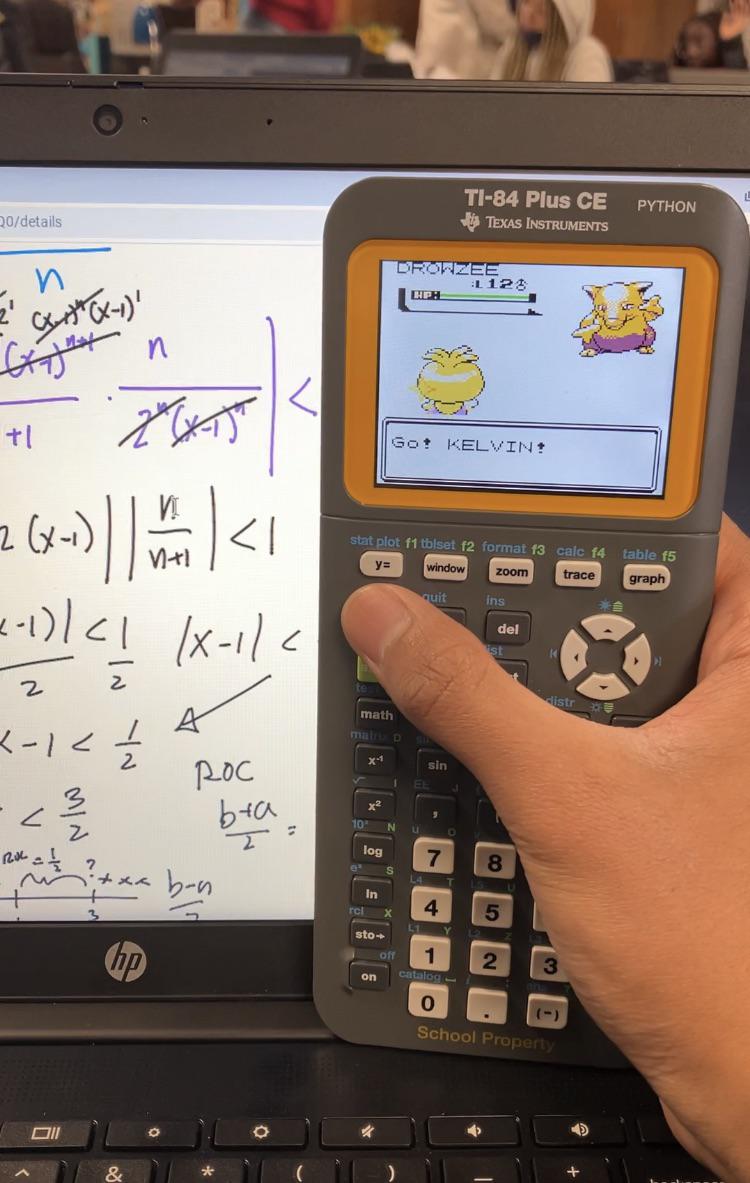 Q0/details
n
(x-1)ⁿ (x-1)¹
(x-1)ⁿ⁺¹ n
+1 · 2ⁿ(x-1)ⁿ | <
2 (x-1) | | n
n+1 | < 1
x-1)| < 1 |x-1| <
2 2
x-1 < 1/2
ROC
< 3/2
b+a
2 =
ROC = 1/2
?
b-a
3
hp
TI-84 Plus CE PYTHON
TEXAS INSTRUMENTS
DROWZEE
:L12♂
HP:
Go! KELVIN!
stat plot f1 tblset f2 format f3 calc f4 table f5
y= window zoom trace graph
quit ins
del
distr
math
matrix D
x⁻¹ sin
√ I EE J
x² ,
10ˣ N u O
log 7 8
eˣ S L4 T L5 U
ln 4 5
rcl X L1 Y L2 Z
sto→ 1 2 3
off catalog
on 0 . (-)
School Property
^ & * ( ) _ +
backspace